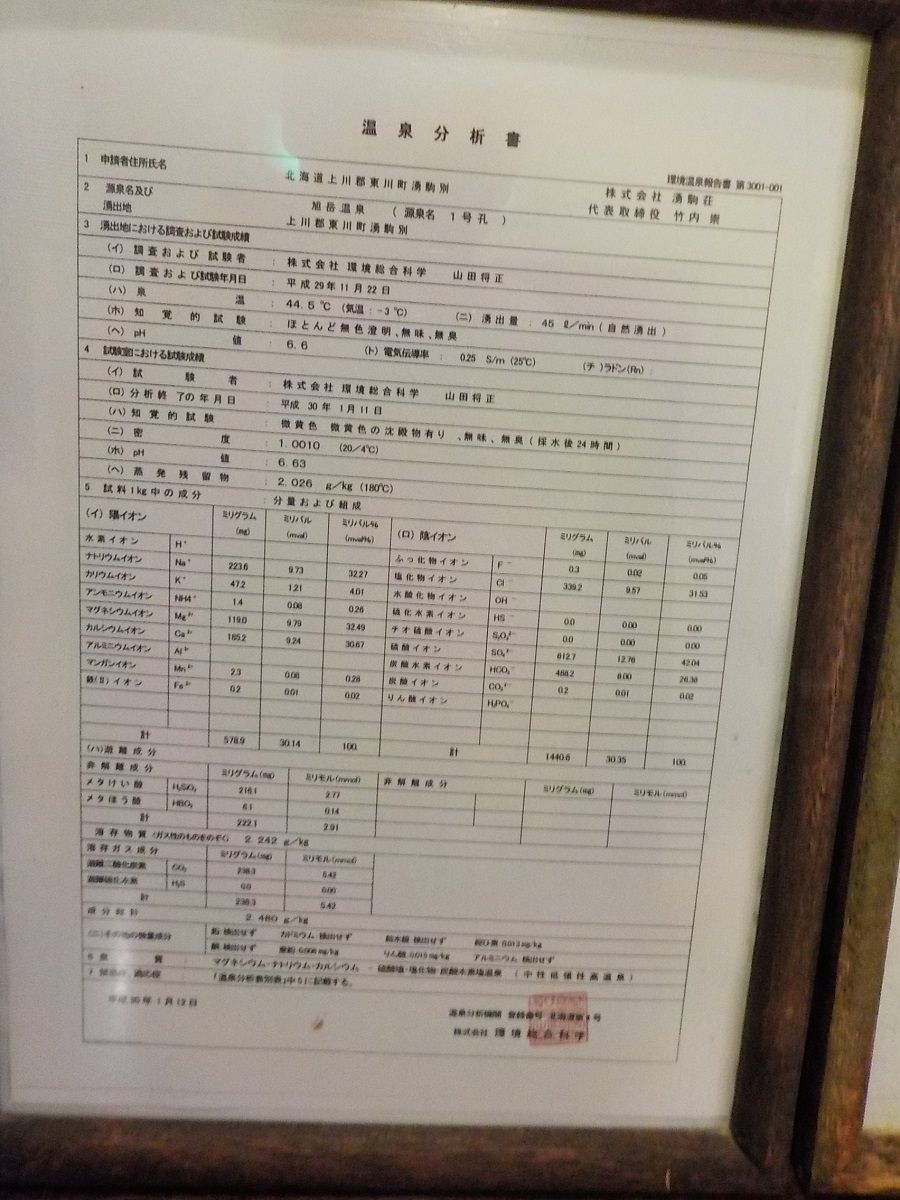 温泉分析書
環境温泉報告書 第3001-001
1 申請者住所氏名 北海道上川郡東川町湧駒別 株式会社 湧駒荘
代表取締役 竹内 崇
2 源泉名及び 旭岳温泉 ( 源泉名 1号孔 )
湧出地 上川郡東川町湧駒別
3 湧出地における調査および試験成績
(イ) 調査および試験者 : 株式会社 環境総合科学 山田将正
(ロ) 調査および試験年月日 : 平成 29年11月22日
(ハ) 泉温 : 44.5 ℃ (気温:-3 ℃) (ニ) 湧出量 : 45 ℓ/min ( 自然湧出 )
(ホ) 知覚的試験 : ほとんど無色澄明、無味、無臭
(ヘ) pH値 : 6.6 (ト) 電気伝導率 : 0.25 S/m (25℃) (チ) ラドン(Rn) :
4 試験室における試験成績
(イ) 試験者 : 株式会社 環境総合科学 山田将正
(ロ) 分析終了の年月日 : 平成 30年 1月11日
(ハ) 知覚的試験 : 微黄色 微黄色の沈殿物有り 、無味、無臭 (採水後24時間)
(ニ) 密度 : 1.0010 (20/4℃)
(ホ) pH値 : 6.63
(ヘ) 蒸発残留物 : 2.026 g/kg (180℃)
5 試料1kg中の成分 : 分量および組成
(イ) 陽イオン ミリグラム (mg) ミリバル (mval) ミリバル% (mval%) (ロ) 陰イオン ミリグラム (mg) ミリバル (mval) ミリバル% (mval%)
水素イオン H⁺ ふっ化物イオン F⁻ 0.3 0.02 0.05
ナトリウムイオン Na⁺ 223.6 9.73 32.27 塩化物イオン Cl⁻ 339.2 9.57 31.53
カリウムイオン K⁺ 47.2 1.21 4.01 水酸化物イオン OH⁻
アンモニウムイオン NH4⁺ 1.4 0.08 0.26 硫化水素イオン HS⁻ 0.0 0.00 0.00
マグネシウムイオン Mg²⁺ 119.0 9.79 32.49 チオ硫酸イオン S₂O₃²⁻ 0.0 0.00 0.00
カルシウムイオン Ca²⁺ 185.2 9.24 30.67 硫酸イオン SO₄²⁻ 612.7 12.76 42.04
アルミニウムイオン Al³⁺ 炭酸水素イオン HCO₃⁻ 488.2 8.00 26.36
マンガンイオン Mn²⁺ 2.3 0.08 0.28 炭酸イオン CO₃²⁻ 0.2 0.01 0.02
鉄(Ⅱ)イオン Fe²⁺ 0.2 0.01 0.02 りん酸イオン H₂PO₄⁻
計 578.9 30.14 100. 計 1440.6 30.35 100.
(ハ)遊離成分
非解離成分 ミリグラム(mg) ミリモル(mmol) 非解離成分 ミリグラム(mg) ミリモル(mmol)
メタけい酸 H₂SiO₃ 216.1 2.77
メタほう酸 HBO₂ 6.1 0.14
計 222.1 2.91
溶存物質 (ガス性のものをのぞく) 2.242 g/kg
溶存ガス成分 ミリグラム(mg) ミリモル(mmol)
遊離二酸化炭素 CO₂ 238.3 5.42
遊離硫化水素 H₂S 0.0 0.00
計 238.3 5.42
成分総計 2.480 g/kg
(ニ)その他の微量成分 鉛 検出せず カドミウム 検出せず 総水銀 検出せず 総ひ素 0.013 mg/kg
銅 検出せず 亜鉛 0.006 mg/kg りん酸 0.015 mg/kg アルミニウム 検出せず
6 泉質 : マグネシウム・ナトリウム・カルシウム - 硫酸塩・塩化物・炭酸水素塩温泉 ( 中性低張性高温泉 )
7 禁忌症、適応症 : 「温泉分析書別表」中5)に記載する。
平成30年 1月12日
温泉分析機関 登録番号 北海道第4号
株式会社 環境総合科学